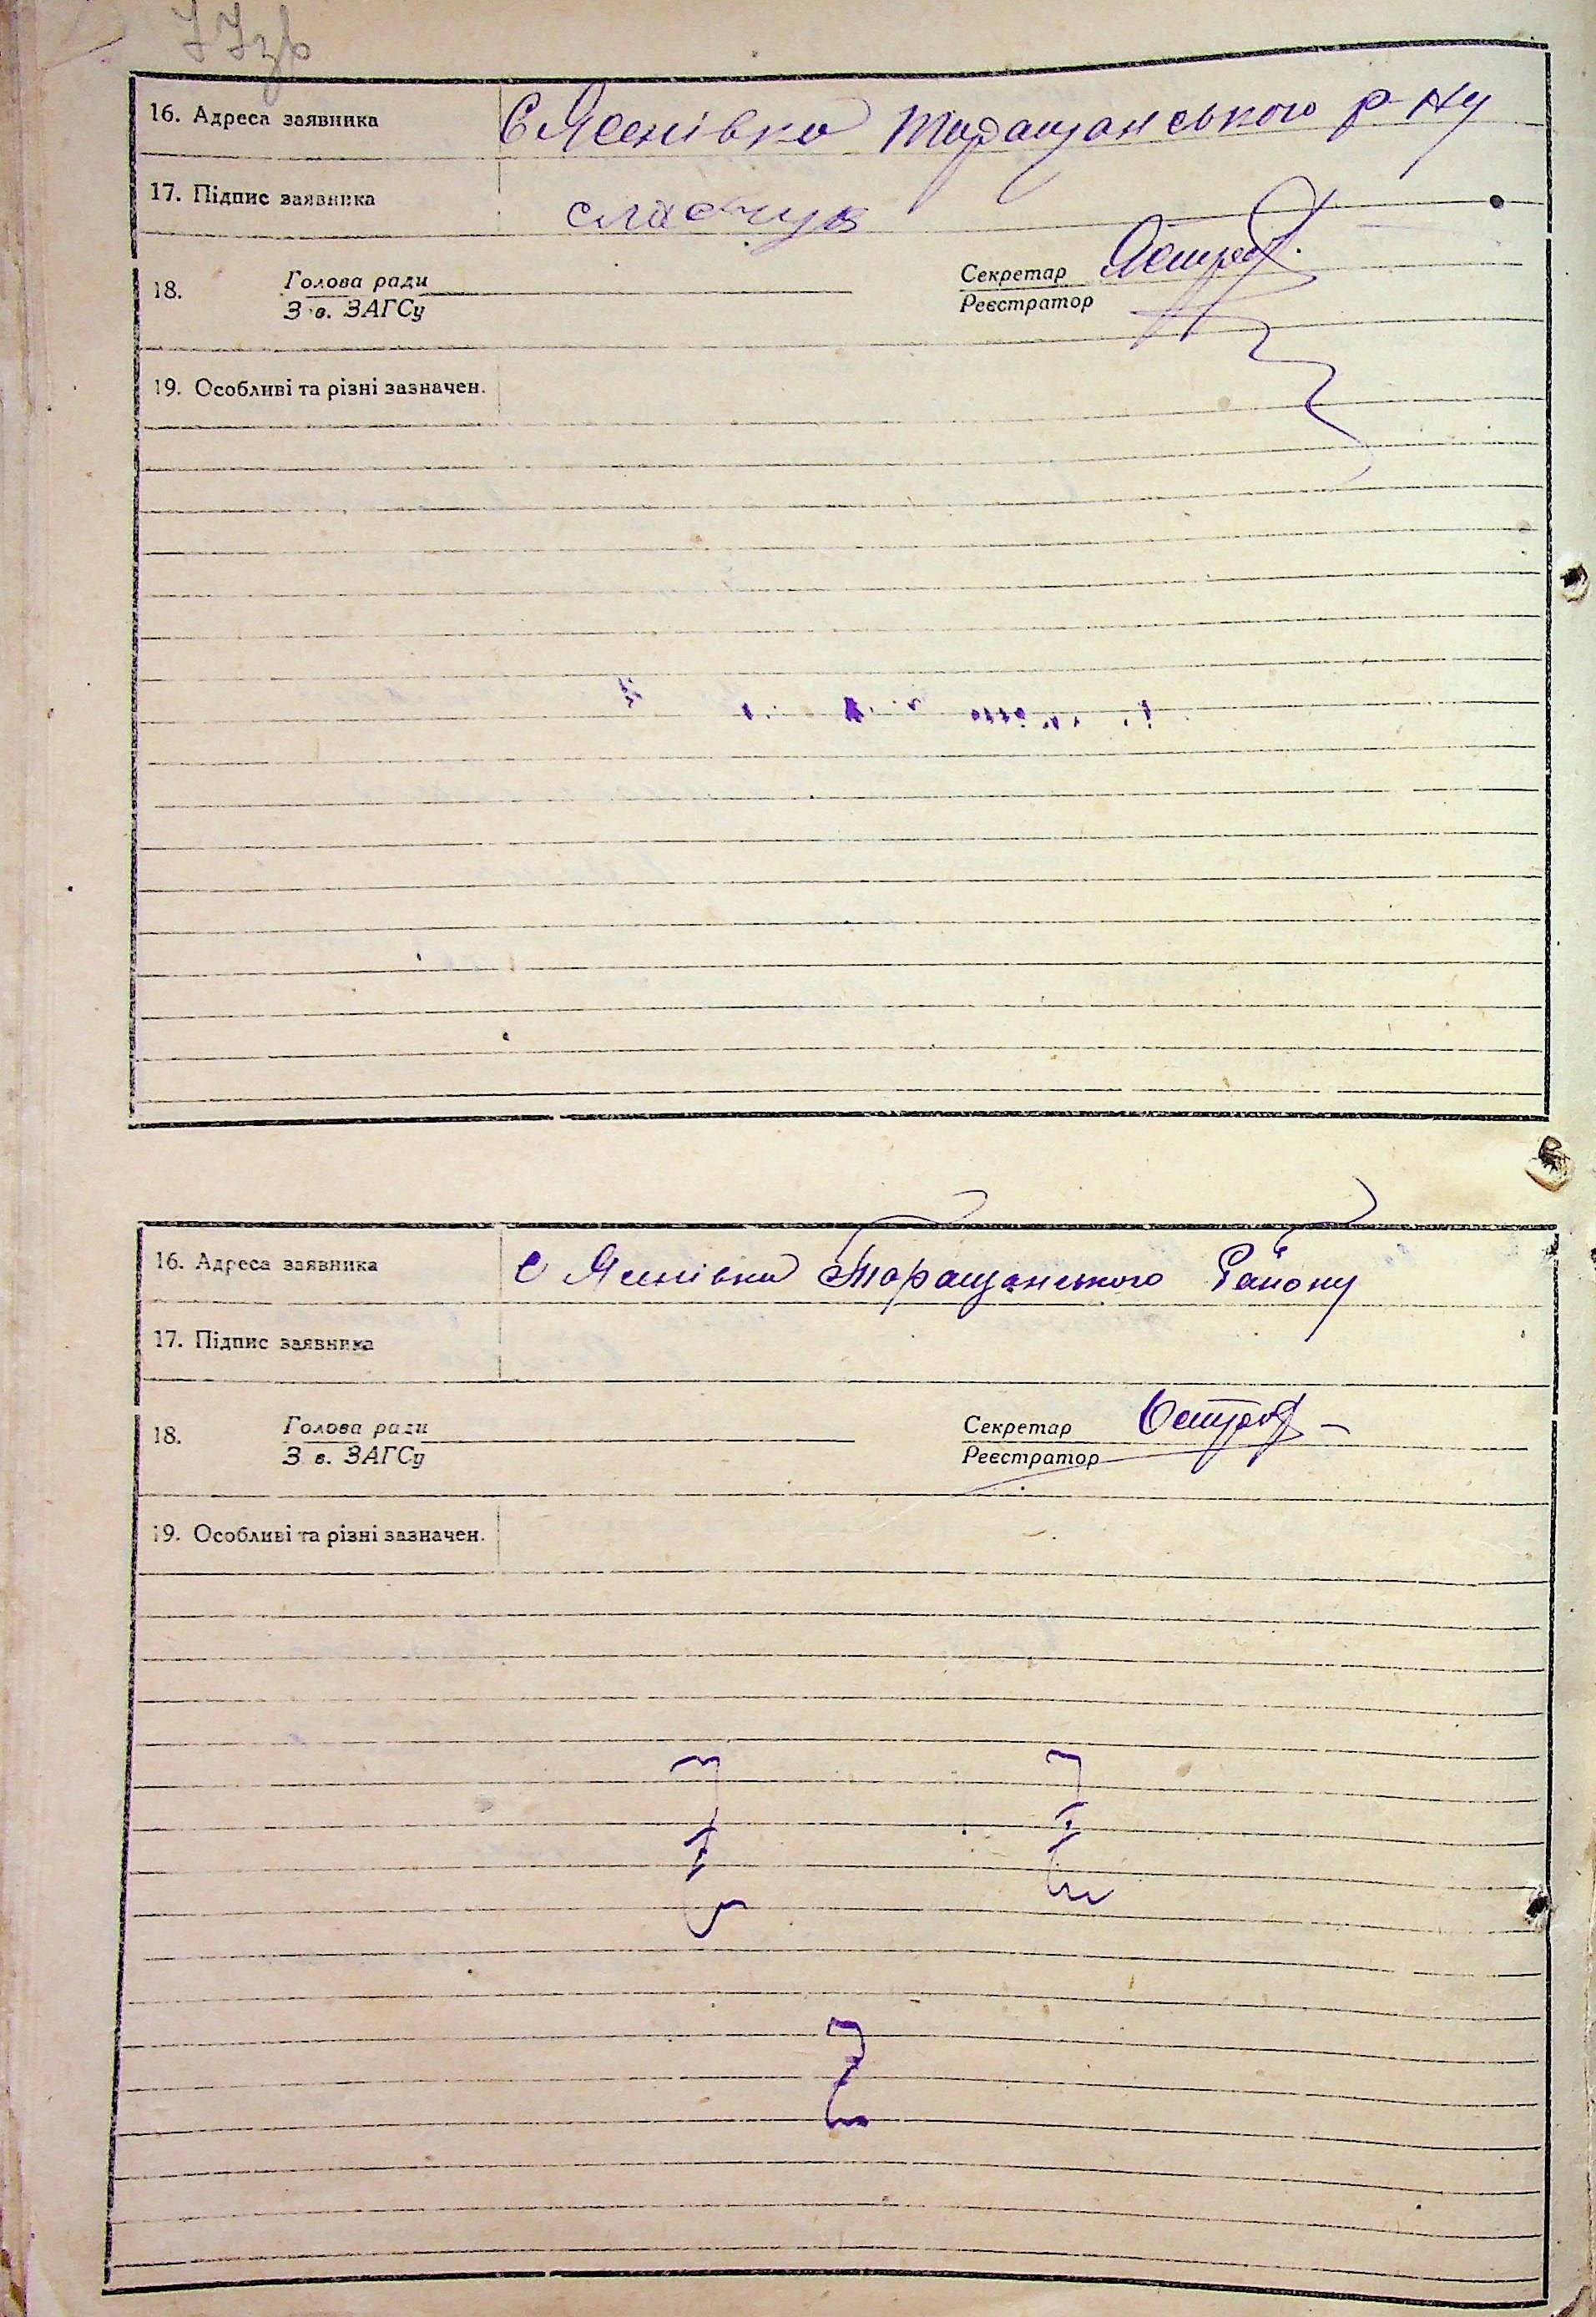 77зв
16. Адреса заявника С Ясенівка Таращанського р-ну
17. Підпис заявника
18. Голова ради Секретар
З в. ЗАГСу Реєстратор
19. Особливі та різні зазначен.
16. Адреса заявника С Яснівка Таращанського Району
17. Підпис заявника
18. Голова ради Секретар
З в. ЗАГСу Реєстратор
19. Особливі та різні зазначен.